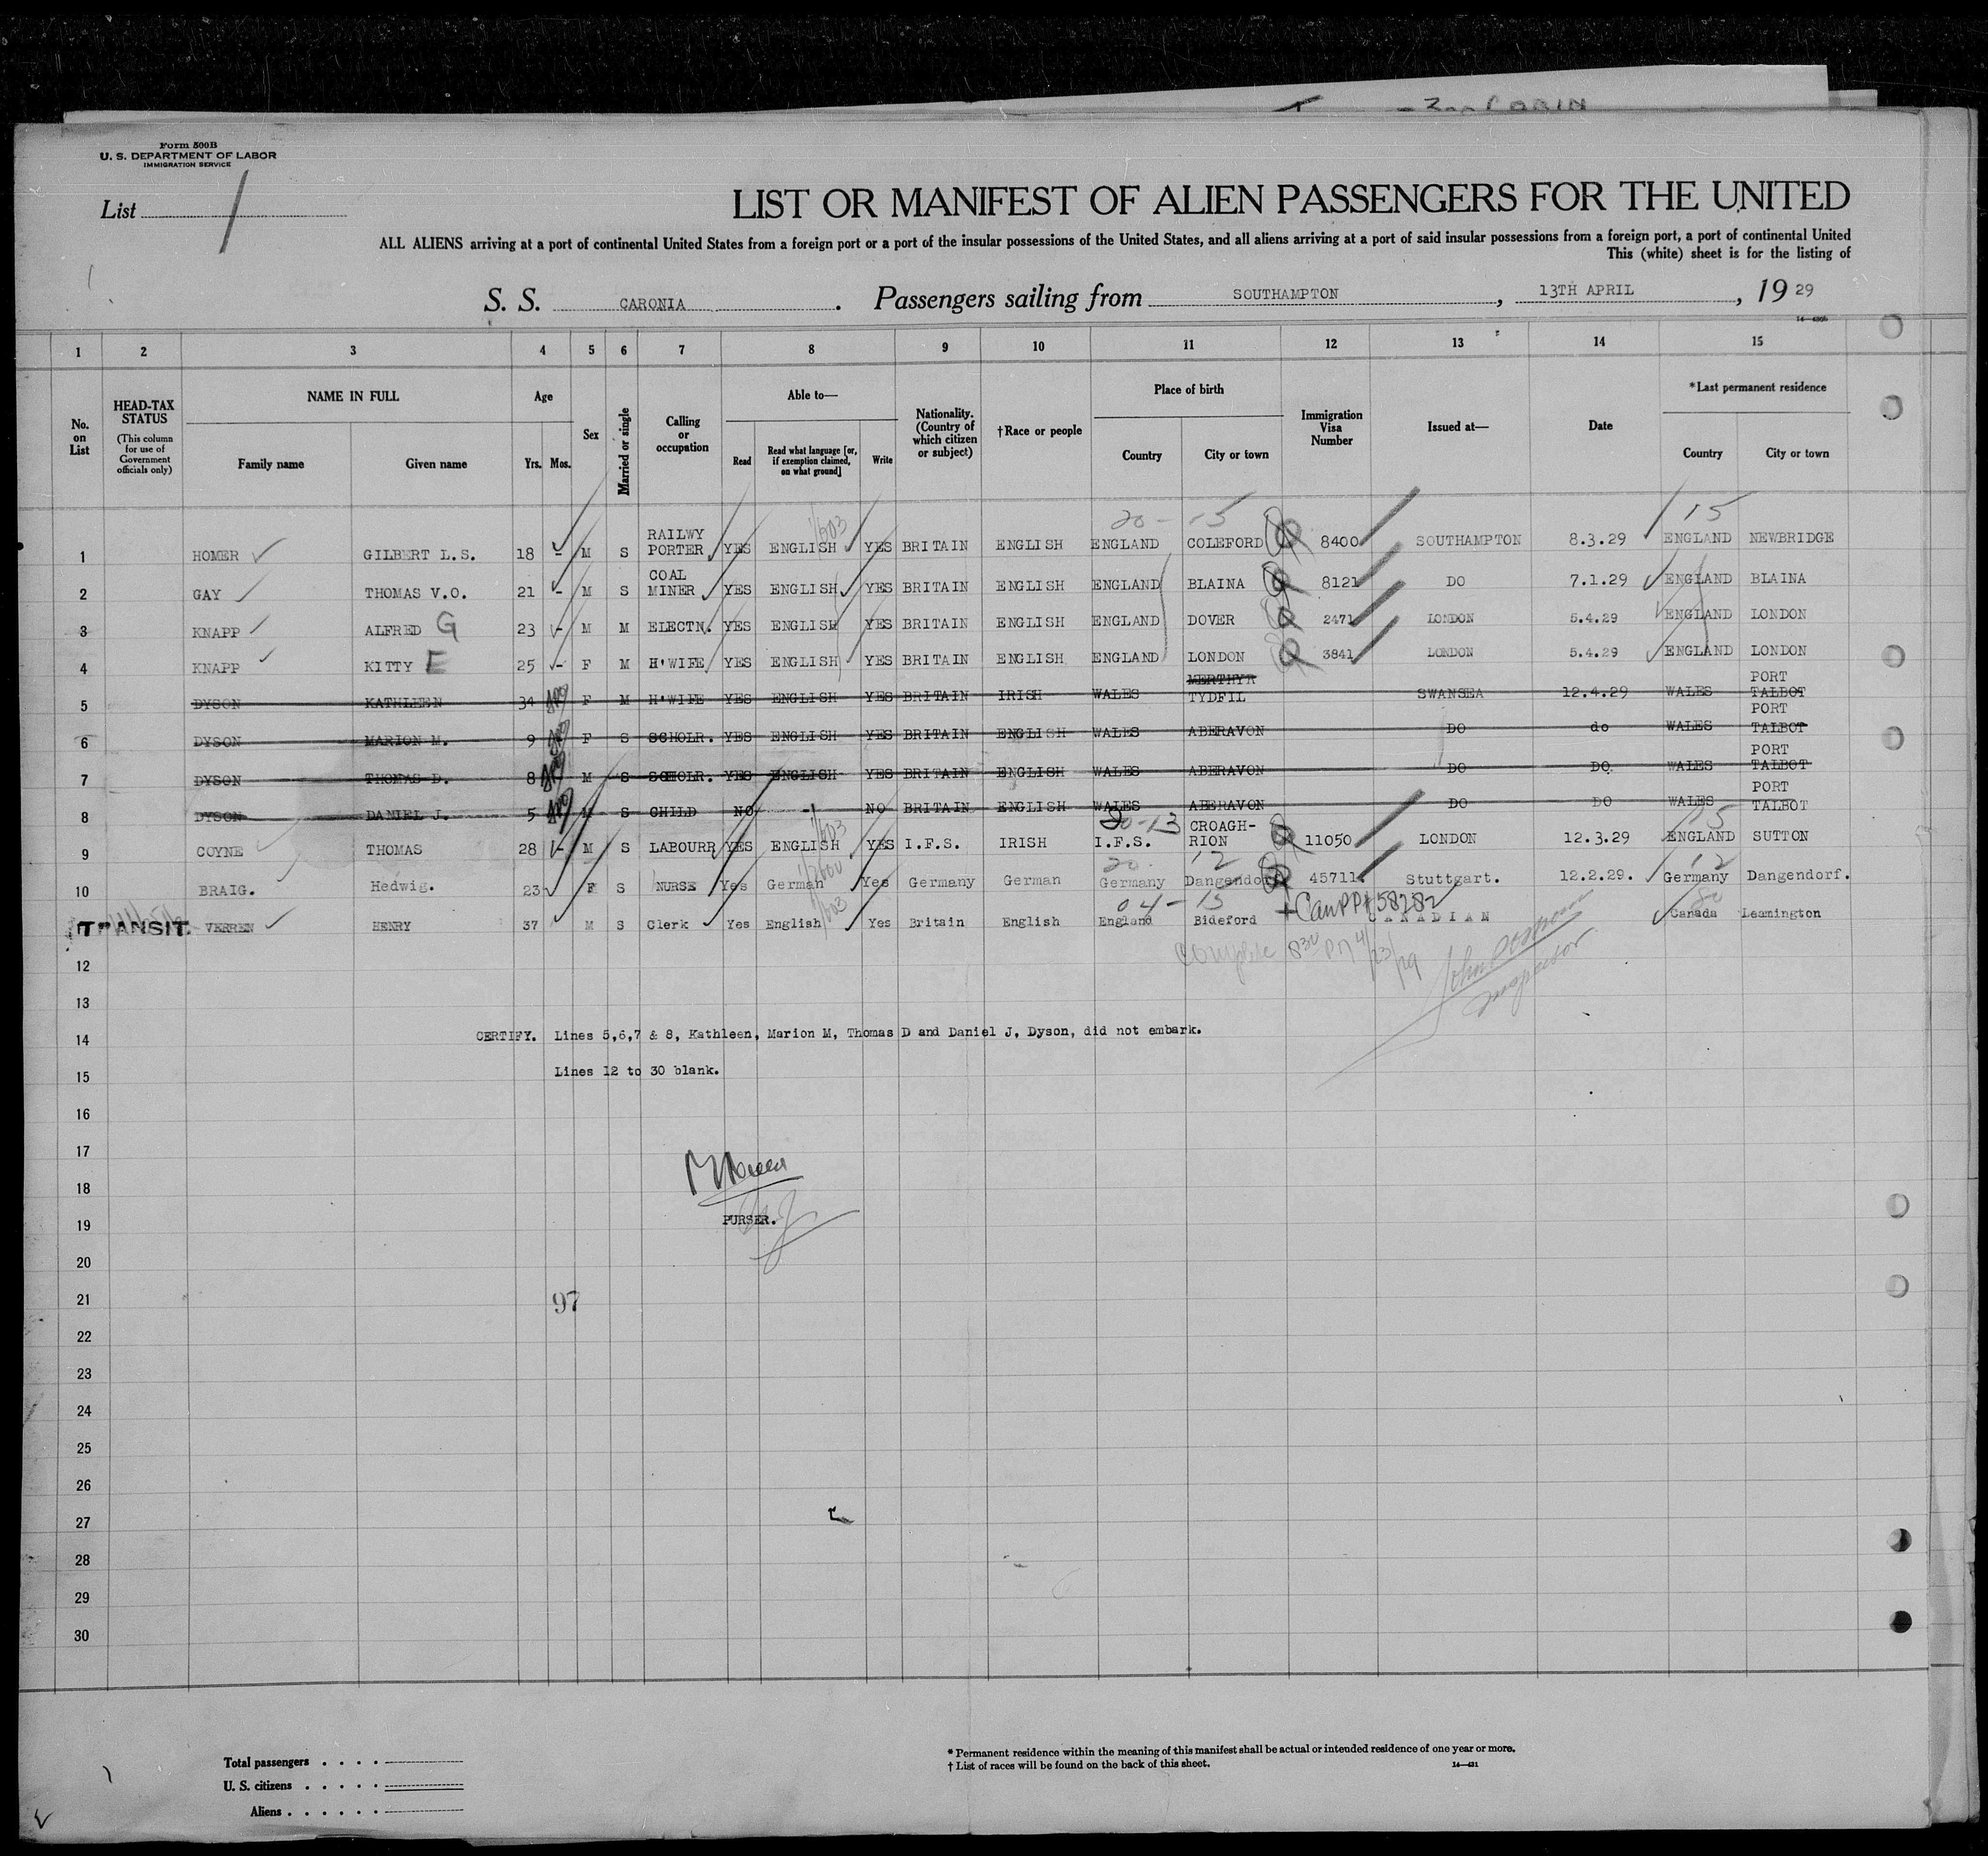 Form 500B
U. S. DEPARTMENT OF LABOR
IMMIGRATION SERVICE
List 1
LIST OR MANIFEST OF ALIEN PASSENGERS FOR THE UNITED
ALL ALIENS arriving at a port of continental United States from a foreign port or a port of the insular possessions of the United States, and all aliens arriving at a port of said insular possessions from a foreign port, a port of continental United
This (white) sheet is for the listing of
S. S. CARONIA. Passengers sailing from SOUTHAMPTON, 13TH APRIL, 19 29
1 2 3 4 5 6 7 8 9 10 11 12 13 14 15
No. on List
HEAD-TAX STATUS (This column for use of Government officials only)
NAME IN FULL Family name Given name
Age Yrs. Mos.
Sex
Married or single
Calling or occupation
Able to— Read Read what language [or, if exemption claimed, on what ground] Write
Nationality. (Country of which citizen or subject)
†Race or people
Place of birth Country City or town
Immigration Visa Number
Issued at—
Date
*Last permanent residence Country City or town
20 - 15 15
1 HOMER GILBERT L.S. 18 - M S RAILWY PORTER YES ENGLISH YES BRITAIN ENGLISH ENGLAND COLEFORD 8400 SOUTHAMPTON 8.3.29 ENGLAND NEWBRIDGE
2 GAY THOMAS V.O. 21 - M S COAL MINER YES ENGLISH YES BRITAIN ENGLISH ENGLAND BLAINA 8121 DO 7.1.29 ENGLAND BLAINA
3 KNAPP ALFRED G 23 - M M ELECTN. YES ENGLISH YES BRITAIN ENGLISH ENGLAND DOVER 2471 LONDON 5.4.29 ENGLAND LONDON
4 KNAPP KITTY E 25 - F M H'WIFE YES ENGLISH YES BRITAIN ENGLISH ENGLAND LONDON 3841 LONDON 5.4.29 ENGLAND LONDON
5 DYSON KATHLEEN 34 F M H'WIFE YES ENGLISH YES BRITAIN IRISH WALES MERTHYR TYDFIL SWANSEA 12.4.29 WALES PORT TALBOT
6 DYSON MARION M. 9 F S SCHOLR. YES ENGLISH YES BRITAIN ENGLISH WALES ABERAVON DO do WALES PORT TALBOT
7 DYSON THOMAS D. 8 M S SCHOLR. YES ENGLISH YES BRITAIN ENGLISH WALES ABERAVON DO DO WALES PORT TALBOT
8 DYSON DANIEL J. 5 M S CHILD NO - NO BRITAIN ENGLISH WALES ABERAVON DO DO WALES PORT TALBOT
20-13 15
9 COYNE THOMAS 28 - M S LABOURR YES ENGLISH YES I.F.S. IRISH I.F.S. CROAGH-RION 11050 LONDON 12.3.29 ENGLAND SUTTON
20 12 12
10 BRAIG. Hedwig. 23 F S NURSE Yes German Yes Germany German Germany Dangendorf 45711 Stuttgart. 12.2.29. Germany Dangendorf.
04-15 + Can PP# 58282 80
TRANSIT. VERREN HENRY 37 M S Clerk Yes English Yes Britain English England Bideford CANADIAN Canada Leamington
Complete 8 30 PM 4/23/29
Inspector
12
13
14 CERTIFY. Lines 5,6,7 & 8, Kathleen, Marion M, Thomas D and Daniel J, Dyson, did not embark.
15 Lines 12 to 30 blank.
16
17
18
19 PURSER.
20
21 97
22
23
24
25
26
27
28
29
30
Total passengers . . . .
U. S. citizens . . . . .
Aliens . . . . . .
* Permanent residence within the meaning of this manifest shall be actual or intended residence of one year or more.
† List of races will be found on the back of this sheet.
14—431